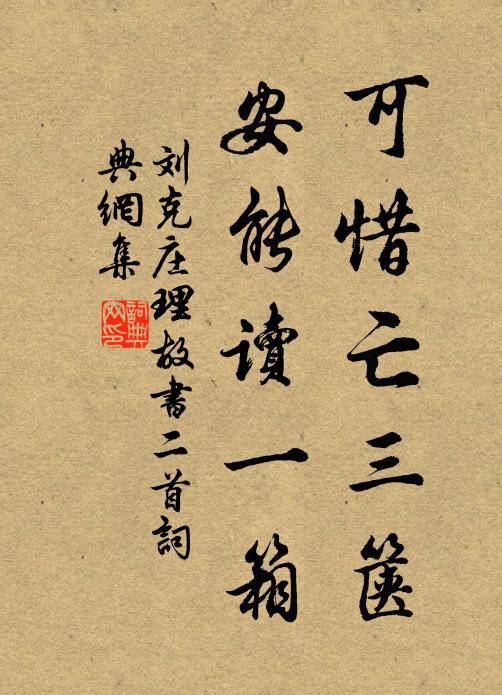 可惜亡三箧
安能讀一箱
刘克庄理故書二首詞
典網集
詞典
网印